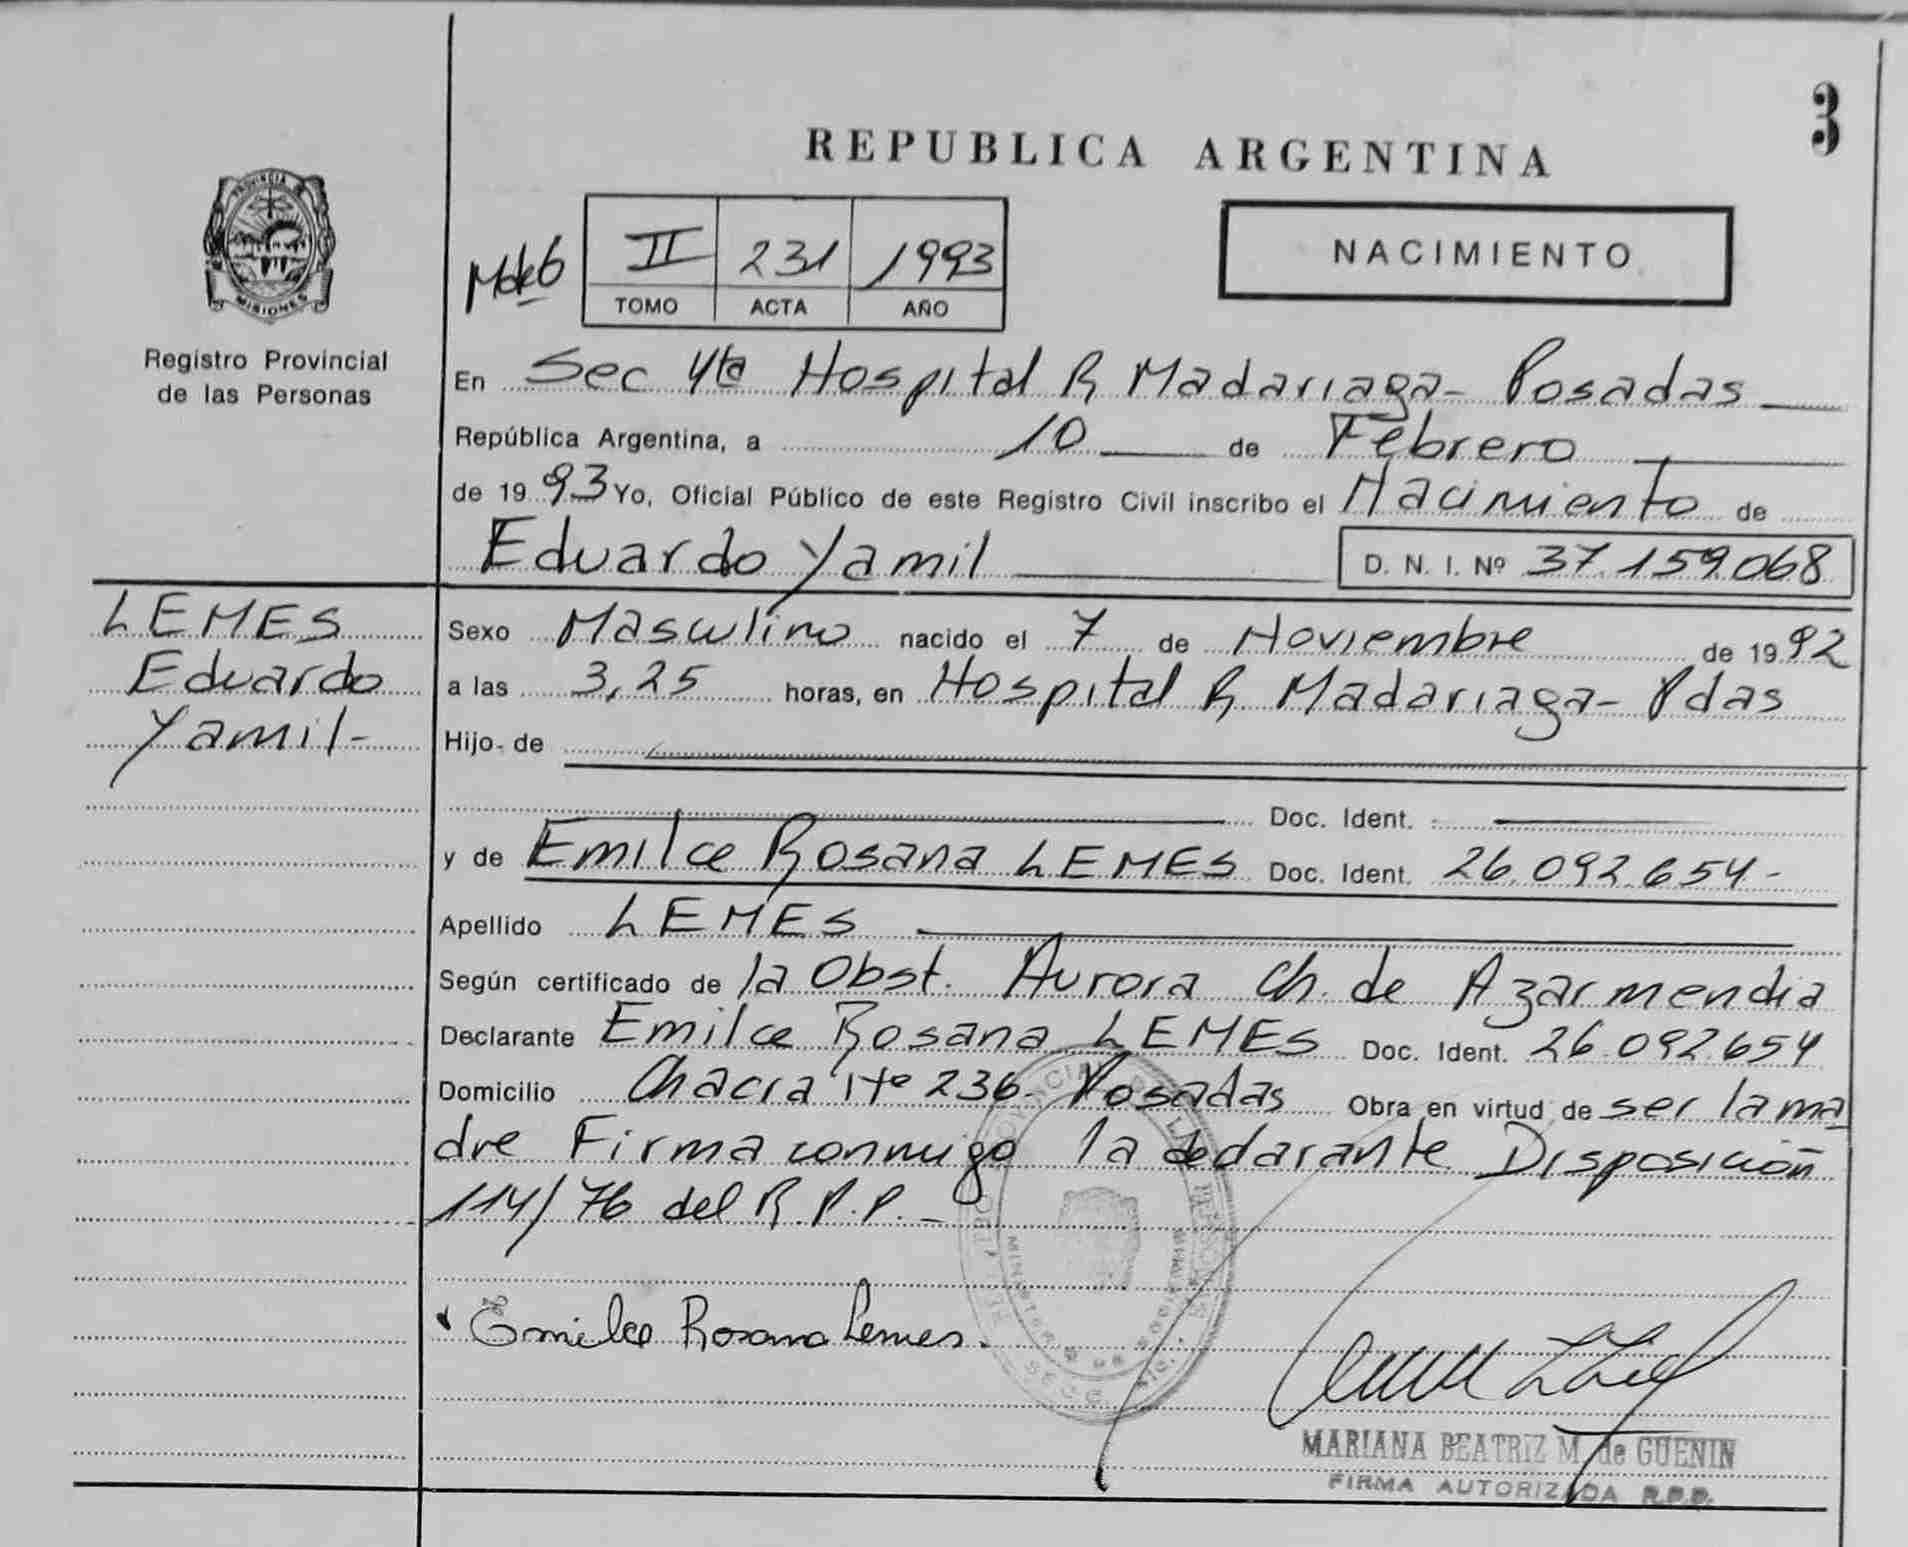 3
REPUBLICA ARGENTINA
PROVINCIA DE
MISIONES
Registro Provincial
de las Personas
II 231 1993
TOMO ACTA AÑO
NACIMIENTO
En Sec 4ta Hospital R Madariaga - Posadas
República Argentina, a 10 de Febrero
de 1993 Yo, Oficial Público de este Registro Civil inscribo el Nacimiento de
Eduardo Yamil D. N. I. Nº 37.159.068
LEMES
Eduardo
Yamil-
Sexo Masculino nacido el 7 de Noviembre de 1992
a las 3,25 horas, en Hospital R Madariaga - Pdas
Hijo de
Doc. Ident.
y de Emilce Rosana LEMES Doc. Ident. 26.092.654-
Apellido LEMES
Según certificado de la Obst. Aurora Ch. de Azarmendia
Declarante Emilce Rosana LEMES Doc. Ident. 26.092.654
Domicilio Chacra Nº 236- Posadas Obra en virtud de ser la ma
dre Firma conmigo la declarante Disposición
114/76 del R.P.P.-
Emilce Rosana Lemes.
MARIANA BEATRIZ M. de GUENIN
FIRMA AUTORIZADA R.P.P.